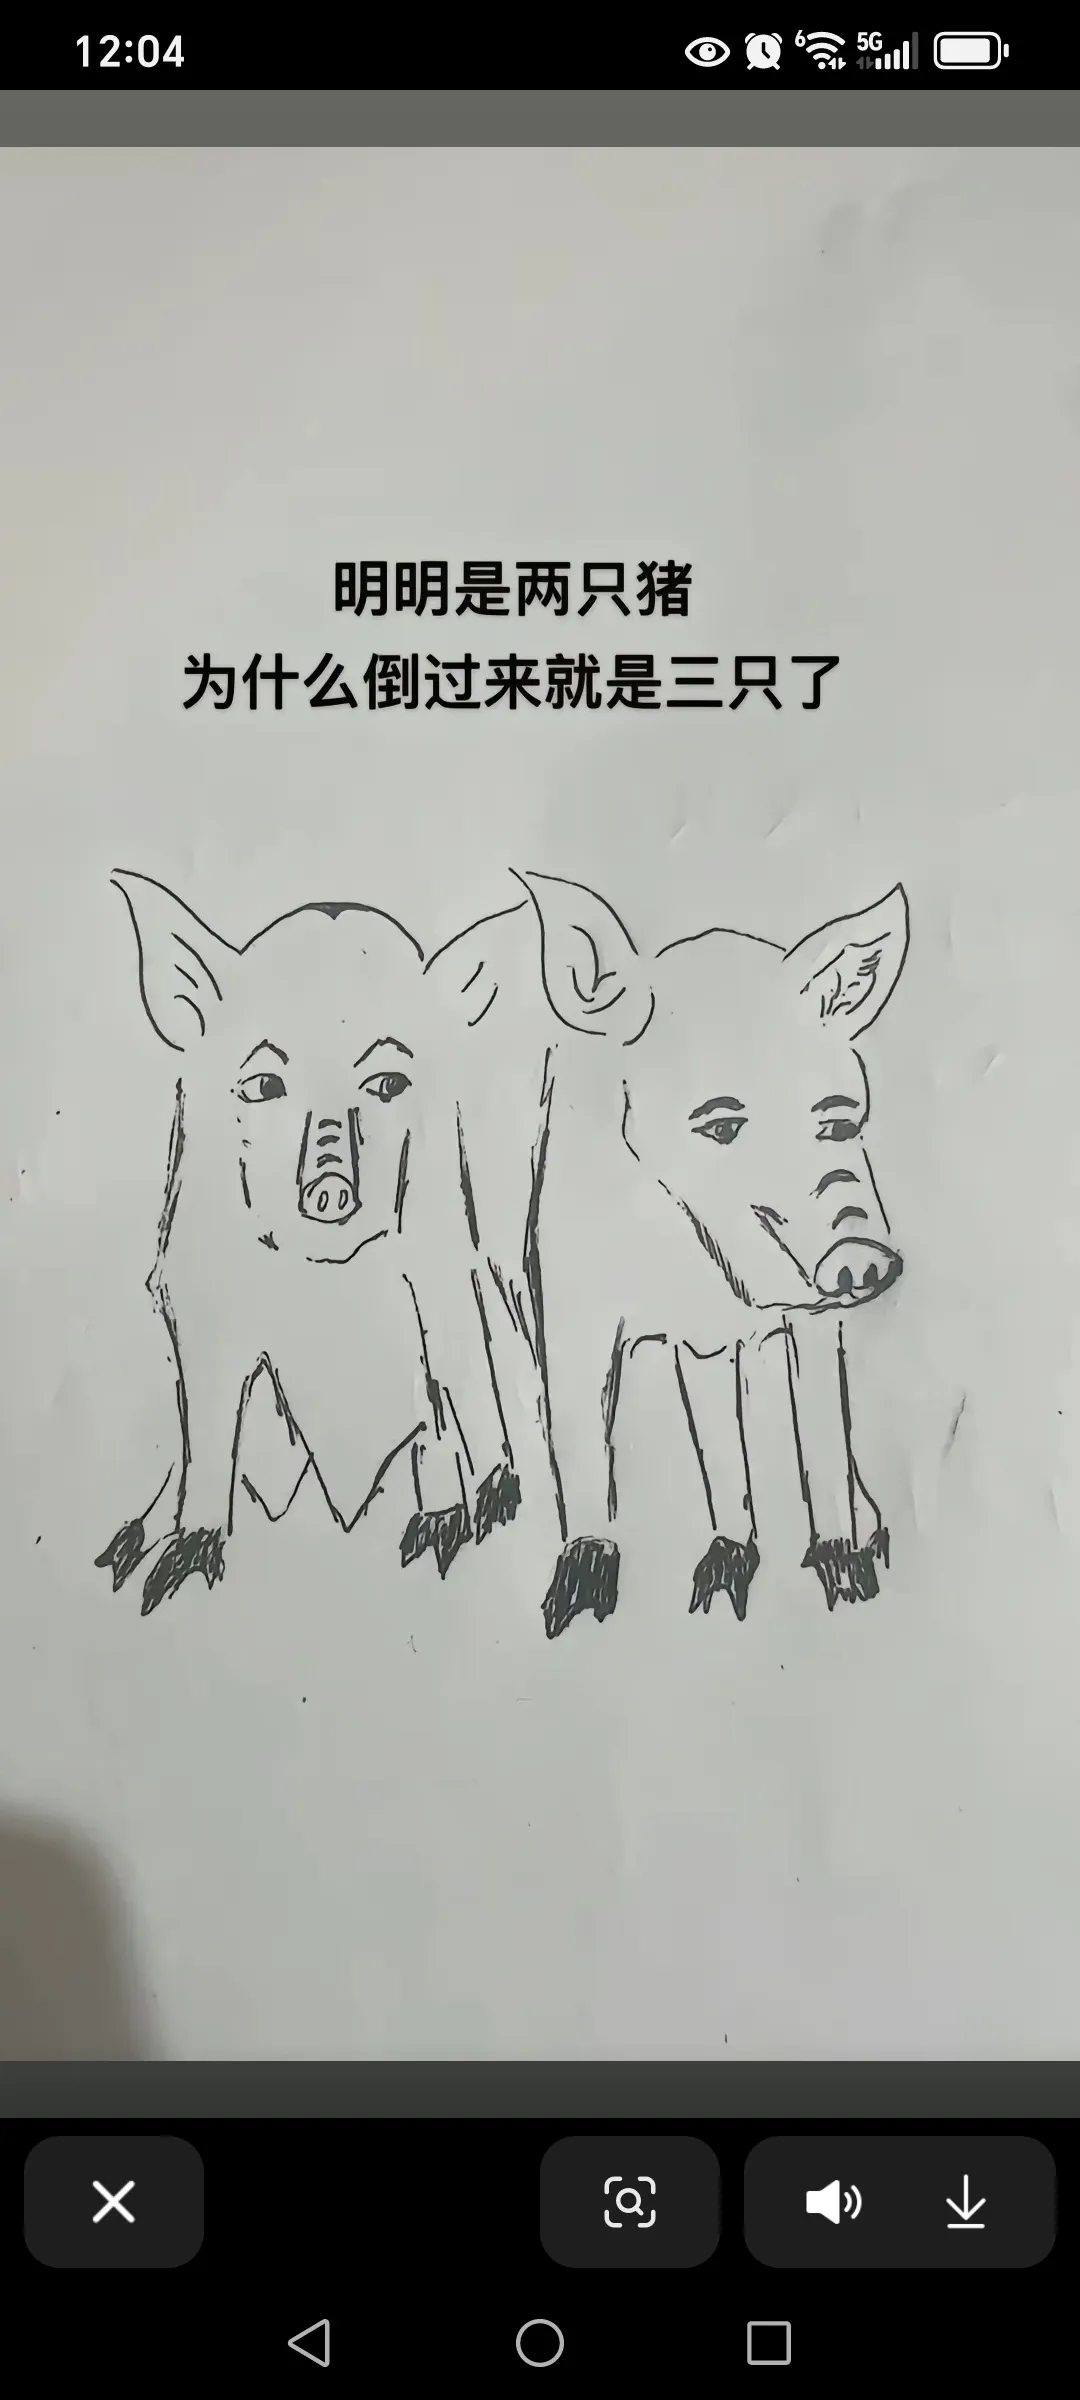 12:04
6 5G
明明是两只猪
为什么倒过来就是三只了